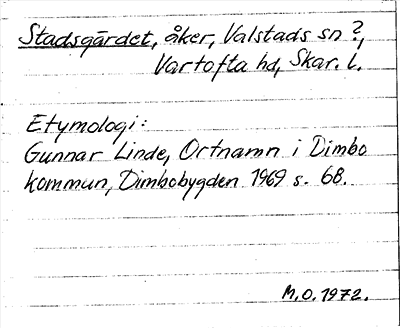 Stadsgärdet, åker, Valstads sn ?,
Vartofta hd, Skar. l.
Etymologi:
Gunnar Linde, Ortnamn i Dimbo
kommun, Dimbobygden 1969 s. 68.
M.O. 1972.